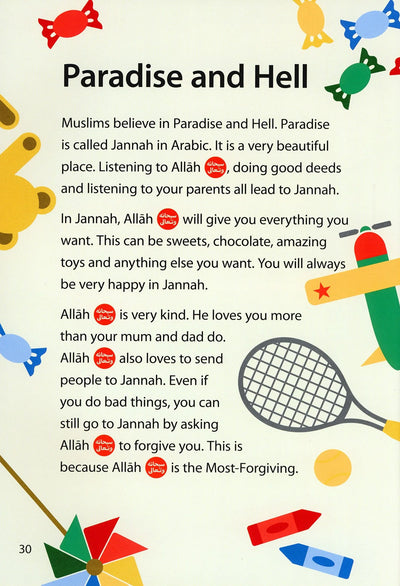 Paradise and Hell
Muslims believe in Paradise and Hell. Paradise
is called Jannah in Arabic. It is a very beautiful
place. Listening to Allāh سبحانه وتعالى, doing good deeds
and listening to your parents all lead to Jannah.
In Jannah, Allāh سبحانه وتعالى will give you everything you
want. This can be sweets, chocolate, amazing
toys and anything else you want. You will always
be very happy in Jannah.
Allāh سبحانه وتعالى is very kind. He loves you more
than your mum and dad do.
Allāh سبحانه وتعالى also loves to send
people to Jannah. Even if
you do bad things, you can
still go to Jannah by asking
Allāh سبحانه وتعالى to forgive you. This is
because Allāh سبحانه وتعالى is the Most-Forgiving.
30